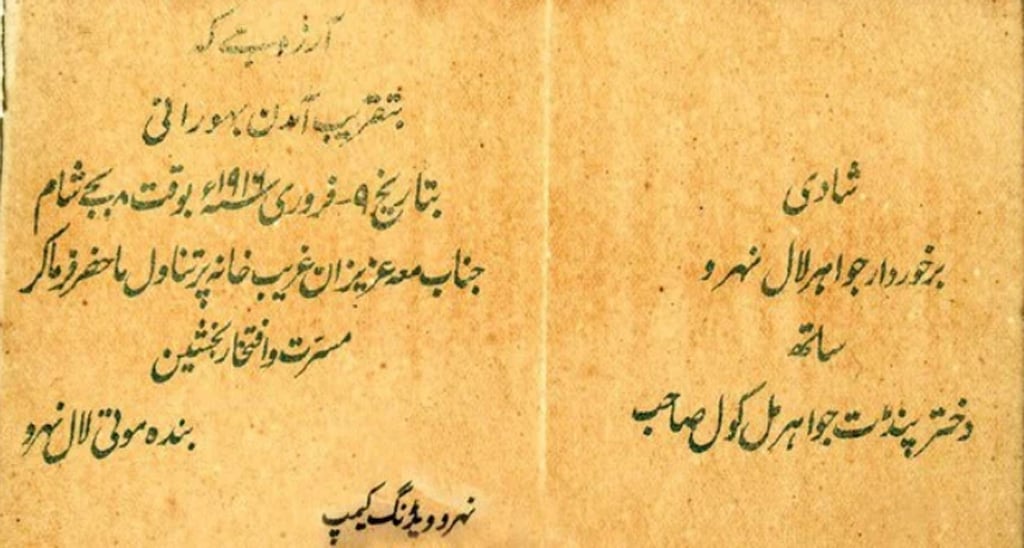 شادی
برخوردار جواہر لال نہرو
ساتھ
دختر پنڈت جواہر مل کول صاحب
آرزو ہے کہ
بتقریب آمدن بہورانی
بتاریخ ۹ - فروری ۱۹۱۶ء بوقت ۸ بجے شام
جناب معہ عزیزان غریب خانہ پر تناول ماحضر فرماکر
مسرت وافتخار بخشیں
بندہ موتی لال نہرو
نہرو ویڈنگ کیمپ